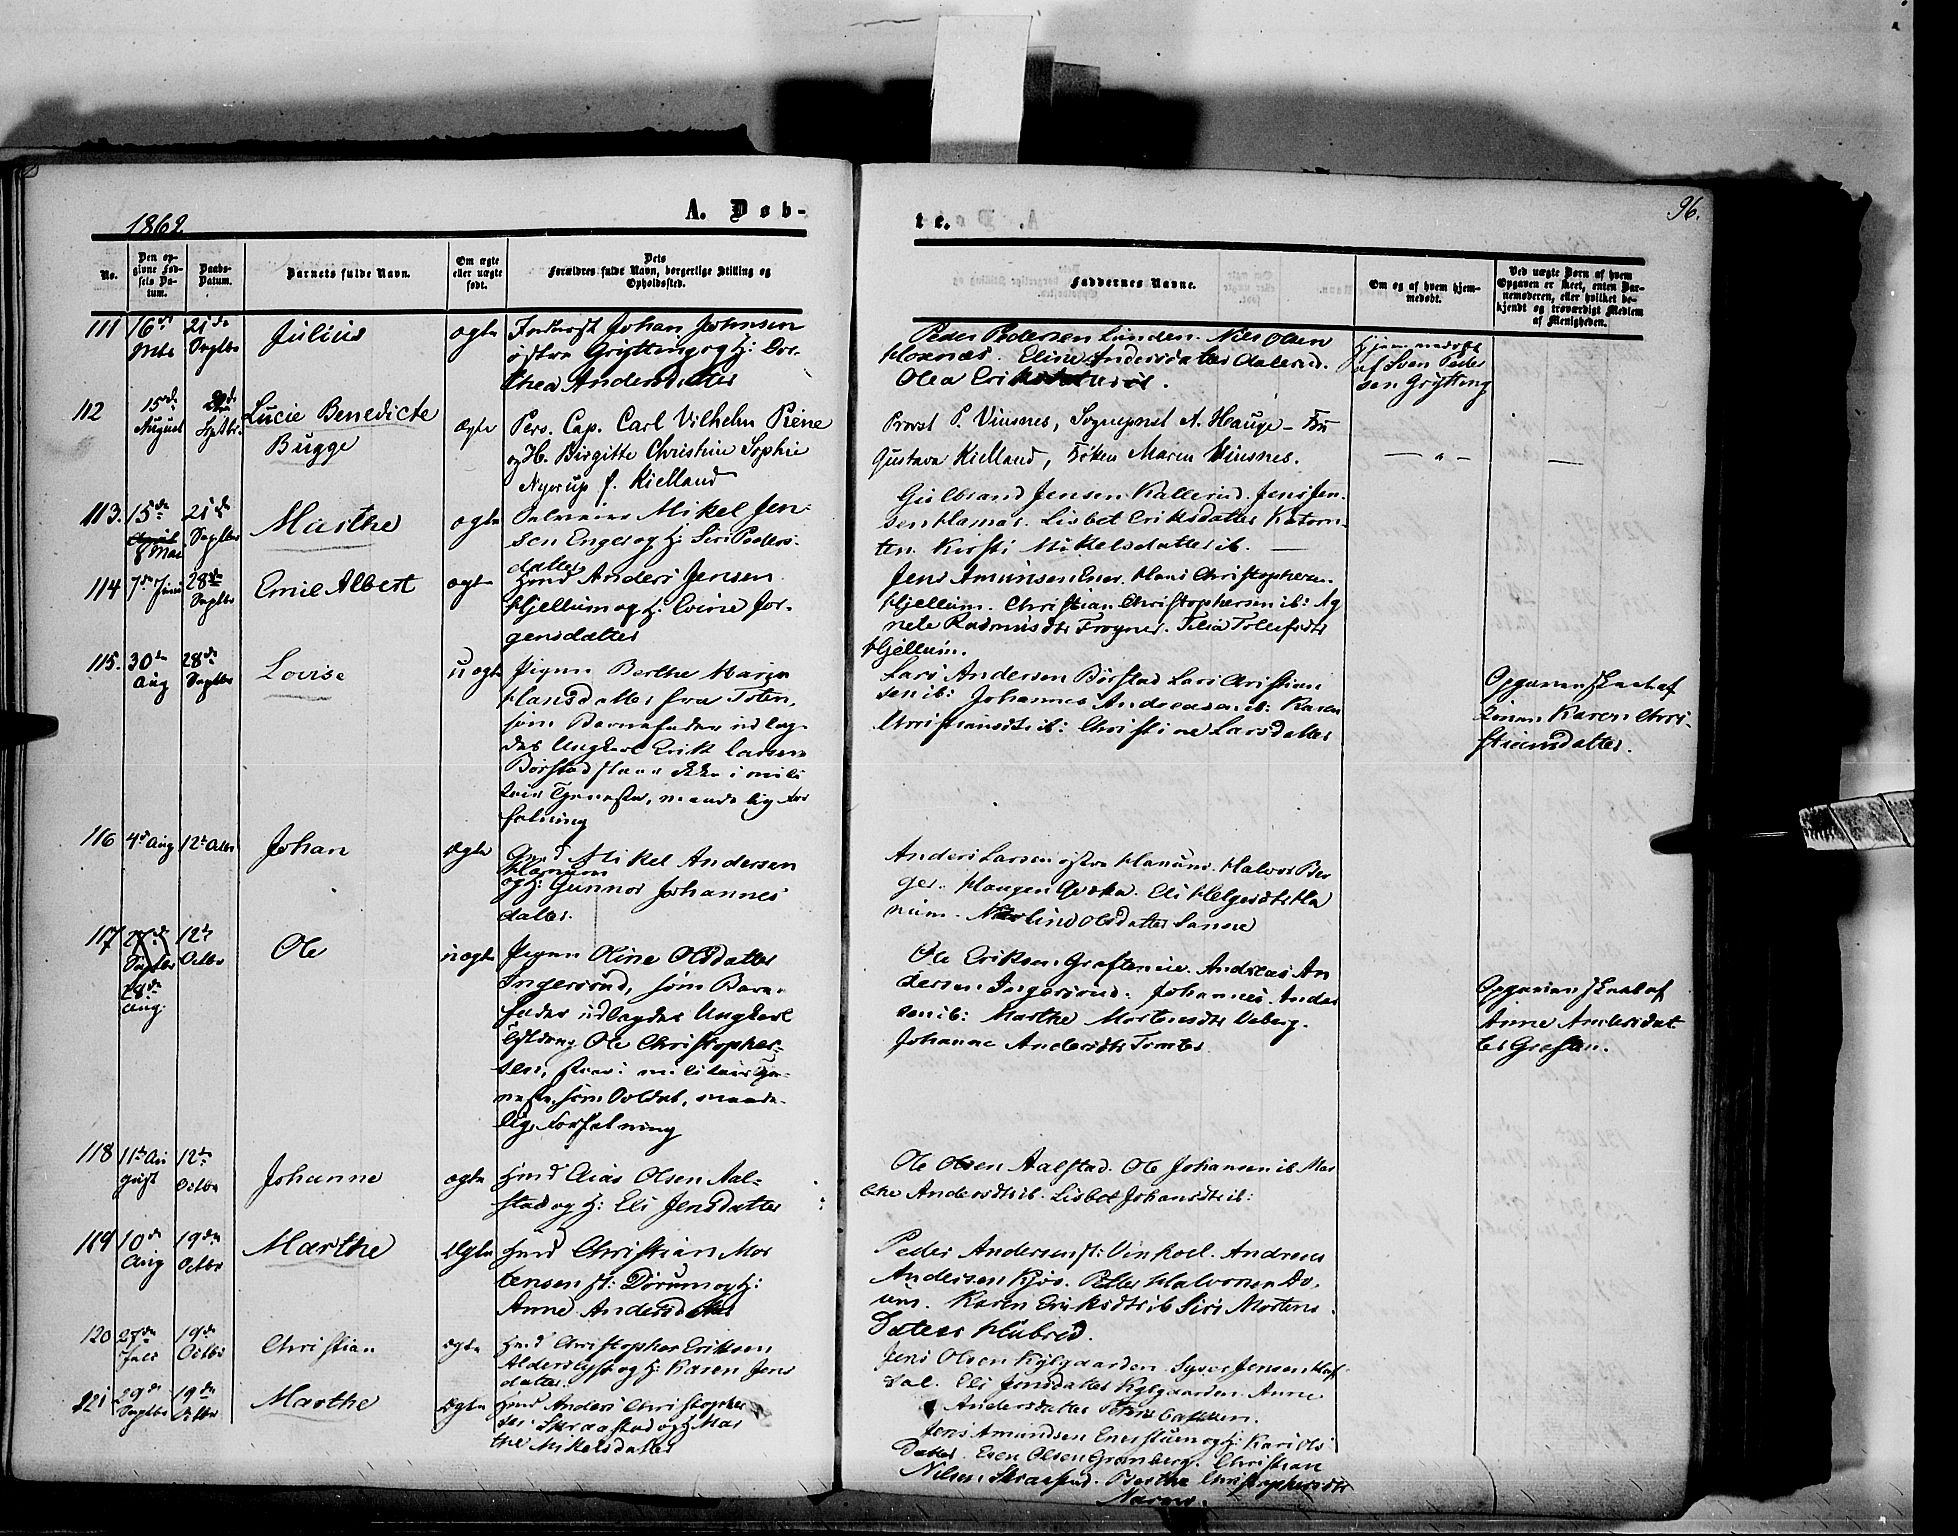 1862.
A. Døb-
te.
96.
No.
Den op-
givne Fød-
sels Da-
tum.
Daabs-
Datum.
Barnets fulde Navn.
Om ægte
eller uægte
født.
Dets
Forældres fulde Navn, borgerlige Stilling og
Opholdssted.
Faddernes Navne.
Om og af hvem hjem-
medøbt.
Ved uægte Børn af hvem
Opgaven er skeet, enten Bar-
nemoderen, eller hvilket be-
kjendt og troværdigt Medlem
af Menigheden.
111 16de Mai 21de Septbr Julius ægte
Johan Johnsen
østre Grytting og H: Dor-
thea Andersdatter
Peder Pedersen Linden. Nils Olsen
Hoxnæs. Eline Andersdatter Dalerud.
Olea
Hjemmedøbt
af Sven Peder
sen Grytting
112 15de August Septbr. Lucie Benedicte
Bugge
ægte Pers. Cap. Carl Vilhelm Piene
og H. Birgitte Christine Sophie
Nyerup f. Kielland
Provst P. Vinsnes, Sogneprst A. Hauge - Fru
Gustava Kielland, Frøken Maren Vinsnes.
— " —
—
113. 15de
8 Mai 21de Septbr Marthe ægte
Mikel Jen-
sen Enger og H: Siri Peders-
datter
Gulbrand Jensen Kallerud. Jens Jen-
sen Hamar. Lisbet Eriksdatter
Kirsti Mikelsdatter ib. —
114 7de Juni 28de Septbr Emil Albert ægte
Hmd Anders Jensen
Hjellum og H: Evine Jør-
gensdatter
Jens Amunsen Ener. Hans Christophersen
Hjellum. Christian Christophersen ib: Ag-
nete Rasmusdtr Frogner.
Hjellum.
115. 30te Aug 28de Septbr Lovise uægte
Pigen Berthe Maria
Hansdatter fra Toten,
som Barnefader udlag-
des Ungkarl Erik Larsen
Børstad staar ikke i mili
tair Tjeneste,
Lars Andersen Børstad Lars Christian
sen ib: Johannes Andreasen ib: Karen
Christiansdtr ib: Christine Larsdatter
Opgaven skeet af
Karen Chri-
stiansdatter.
116 4de Aug 12te Octbr Johan ægte
Gmd Mikel Andersen
Hanum
og H: Gunnor Johannes
datter.
Anders Larsen østre Hanum. Halvor Ber
ger. Haugen Eli Helgesdtr Ha
num. Olsdatter Sanne
117 27de Septbr
28de Aug. 12te Octbr Ole uægte
Pigen Oline Olsdatter
Ingersrud, som Barne-
fader udlagdes Ungkarl
Ole Christopher-
sen, staar i militair Tje-
neste som Soldat,
Ole Eriksen Andreas An
dersen Ingersrud. Johannes Anders
sen ib: Marthe Mortensdtr Veberg.
Johanne Andersdtr Tomter
Opgaven skeet af
Anne Andersdat
ter
118 11te Au
gust 12te Octbr Johanne ægte
Hmd Elias Olsen Aal-
stad og H: Eli Jensdatter
Ole Olsen Aalstad. Ole Johansen ib. Mar
the Andersdtr ib. Lisbet Johansdtr ib:
119 10de Aug 19de Octbr Marthe ægte
Hmd Christian Mor
tensen st: Dørum og H:
Anne Andersdatter
Peder Andersen st: Vinkoel. Andreas
Andersen Kjos. Peder Halvorsen Dø-
rum. Karen Eriksdtr ib Siri Mortens-
datter
120 27de Juli 19de Octbr Christian ægte
Hmd Christopher Eriksen
Alderslyst og H: Karen Jens
datter
Jens Olsen Kylgaarden. Syver Jensen
dal. Eli Jensdatter Kylgaarden. Anne
Andersdatter
121 29de Septbr 19de Octbr Marthe ægte
Hmd Anders Christopher
sen Skraastad og H: Mar
the Mikelsdatter
Jens Amundsen Enerstuen og H: Kari Ols
datter. Even Olsen Grønberg. Christian
Nilsen Skraastad. Berthe Christophersdtr